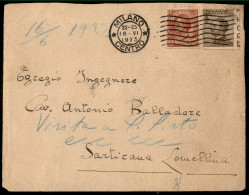 16/ 192
MILANO
22-23
18·VI
1923
CENTRO
Egregio Ingegnere
Cav. Antonio Balladore
Visita a S.
Sartirana Lomellina